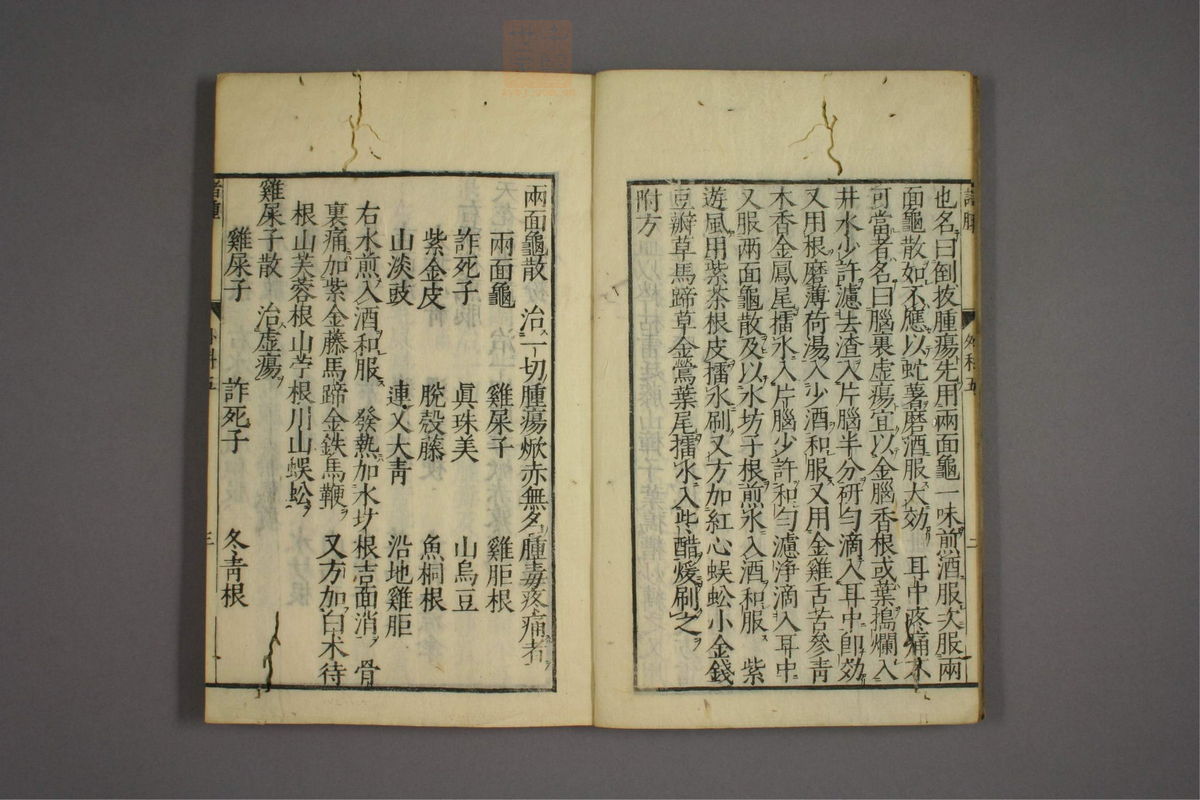 也名曰倒拔腫瘍先用兩面龜一味煎酒服次服兩
面龜散如不應以虻薯磨酒服大効 耳中疼痛不
可當者名曰腦裏虛瘍宜以金腦香根或葉搗爛入
井水少許濾去渣入片腦半分硏勻滴入耳中卽効
又用根磨薄荷湯入少酒和服又用金雞舌苦參靑
木香金鳳尾擂水入片腦少許和勻濾浄滴入耳中
又服兩面龜散及以水坊子根煎水入酒和服 紫
遊風用紫茶根皮擂水刷又方加紅心蜈蚣小金錢
豆瓣草馬蹄草金鶯葉尾擂水入些醋煖刷之
附方
外科五
二
兩面龜散 治一切腫瘍焮赤無名腫毒疼痛者
兩面龜 雞屎子 雞胵根
詐死子 眞珠美 山烏豆
紫金皮 脫殼藤 魚桐根
山淡豉 連乂大靑 沿地雞胵
右水煎入酒和服 發熱加水圿根吉面消 骨
裏痛加紫金藤馬蹄金鉄馬鞭 又方加白木待
根山芙蓉根山苧根川山蜈蚣
雞屎子散 治虛瘍
雞屎子 詐死子 冬靑根
外科五
三